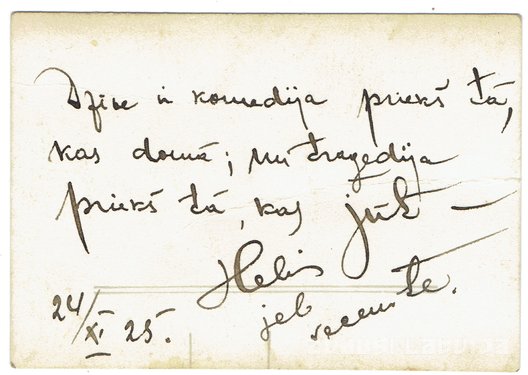 Dzīve ir komedija priekš tā,
kas domā; un tragedija
priekš tā, kas jūt —
jeb
24/XI 25.